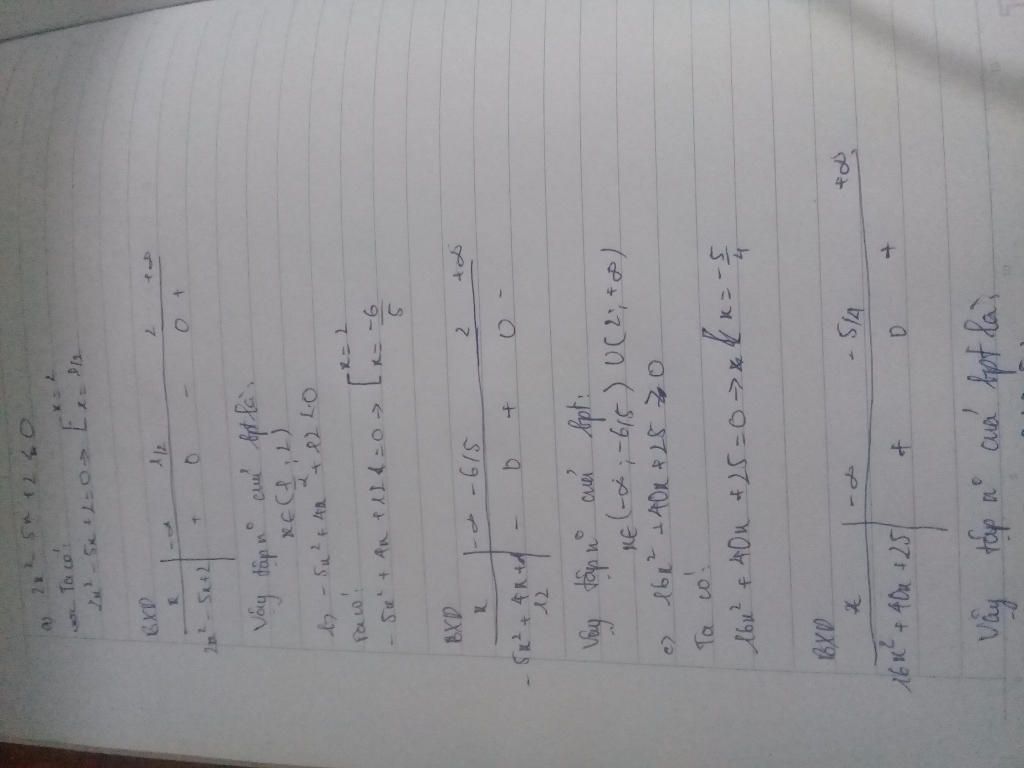 a) 2x² - 5x + 2 ≤ 0
Ta có:
2x² - 5x + 2 = 0 → [ x = 2
x = 1/2
BXD
x | -∞ 1/2 2 +∞
2x² - 5x + 2 | + 0 - 0 +
Vậy tập n° cuả bpt là:
x ∈ (1/2; 2)
b, -5x² + 4x + 12 < 0
Ta có:
-5x² + 4x + 12 = 0 → [ x = 2
x = -6/5
BXD
x | -∞ -6/5 2 +∞
-5x² + 4x + 12 | - 0 + 0 -
Vậy tập n° cuả bpt:
x ∈ (-∞; -6/5) ∪ (2; +∞)
c) 16x² + 40x + 25 > 0
Ta có:
16x² + 40x + 25 = 0 → x = -5/4
BXD
x | -∞ -5/4 +∞
16x² + 40x + 25 | + 0 +
Vậy tập n° cuả bpt là: